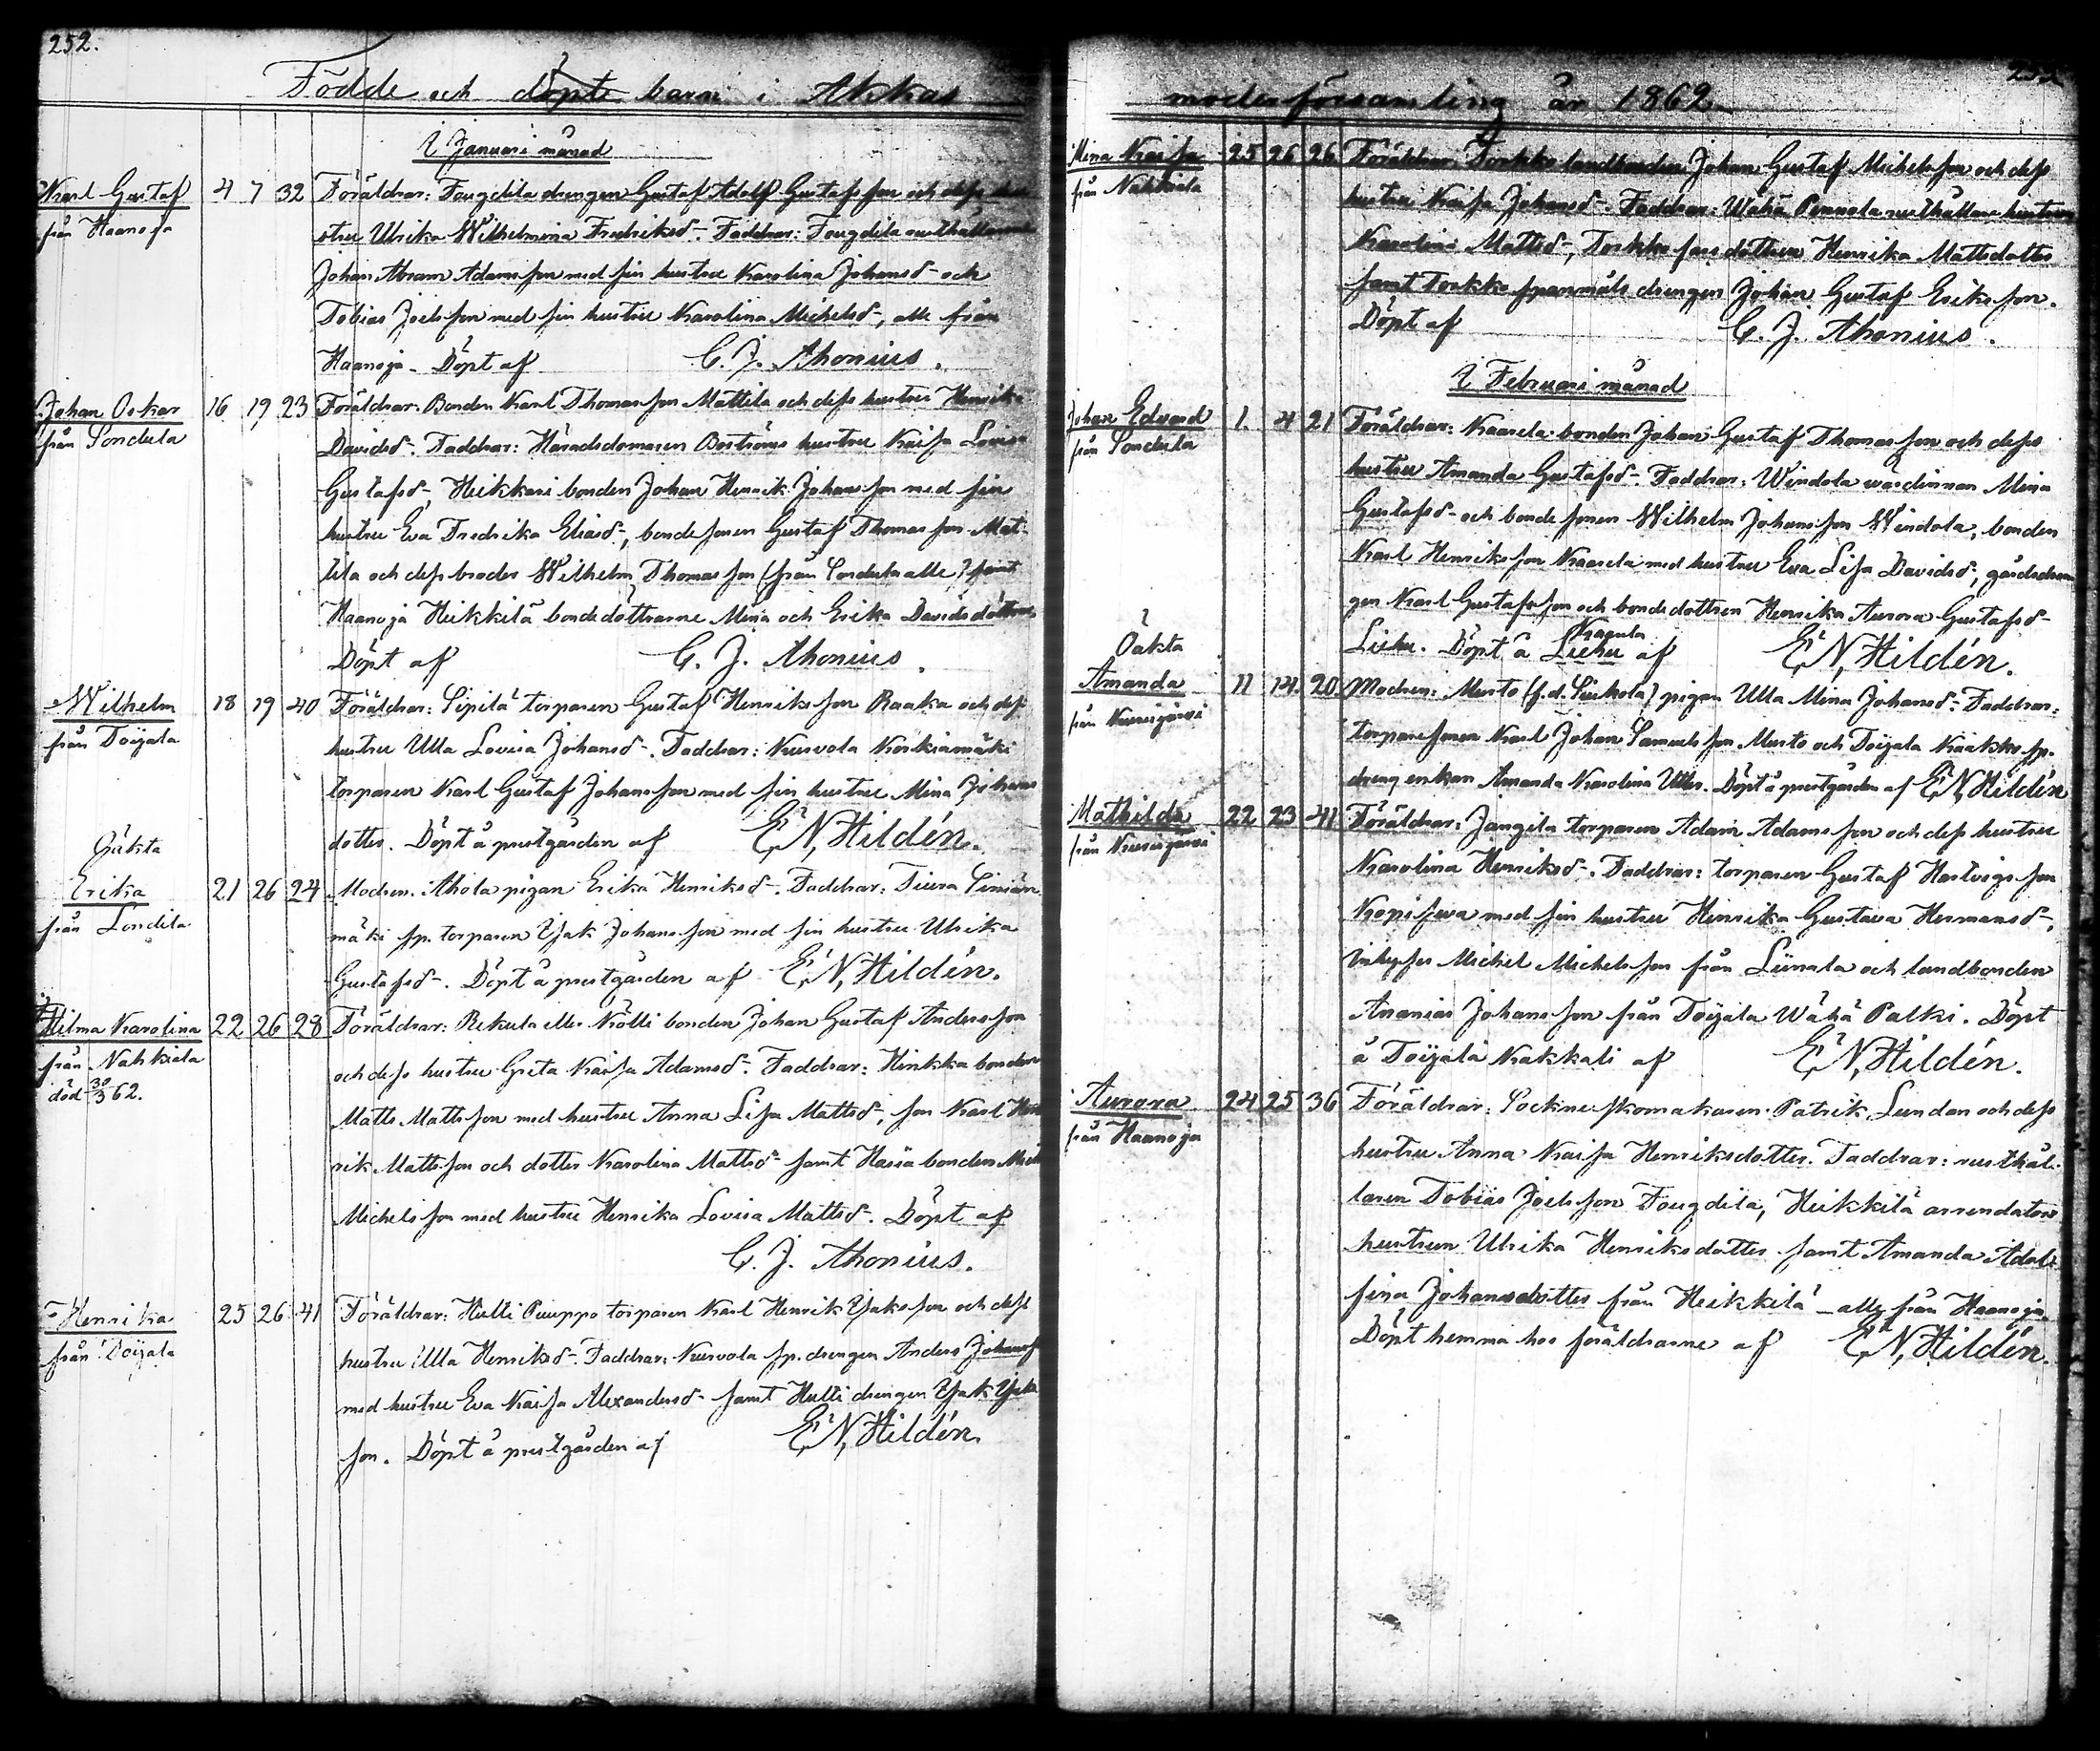 252.
Födde och döpte barn i Akkas
I Januari månad
Karl Gustaf 4 7 32 Föräldrar: Fougdila drengen Gustaf Adolf Gustafsson och dess
från Haanoja
stru Ulrika Wilhelmina Fredriksd-. Faddrar: Fougdila rusthållaren
Johan Abram Adamsson med sin hustru Karolina Johansd- och
Tobias Joelsson med sin hustru Karolina Michelsd-, alle från
Haanoja. Döpt af C. J. Ahonius.
Johan Oskar 16 19 23 Föräldrar: Bonden Karl Thomasson Mattila och dess hustru Henrika
från Sondula
Davidsd-. Faddrar: Häradsdomaren Boströms hustru Kaisa Lovisa
Gustafsd-, Heikkari bonden Johan Henrik Johansson med sin
hustru Eva Fredrika Eliasd-, bondesonen Gustaf Thomasson Mat-
tila och dess broder Wilhelm Thomasson (från Sondula alle) samt
Haanoja Heikkilä bondedöttrarne Mina och Erika Davidsdöttrar
Döpt af C. J. Ahonius.
Wilhelm 18 19 40 Föräldrar: Sipilä torparen Gustaf Henriksson Raaka och dess
från Toijala
hustru Ulla Lovisa Johansd-. Faddrar: Kurvola Koskiamäki
torparen Karl Gustaf Johansson med sin hustru Mina Johans
dotter. Döpt å prestgården af E, N, Hildén.
Oäkta
Erika 21 26 24 Modren: Ahola pigan Erika Henriksd-. Faddrar: Tiura
från Sondila
mäki sp. torparen Isak Johansson med sin hustru Ulrika
Gustafsd-. Döpt å prestgården af E, N, Hildén.
Hilma Karolina 22 26 28 Föräldrar: Rekula eller Kölli bonden Johan Gustaf Andersson
från Nahkiala
död 30/3 62.
och dess hustru Greta Kaisa Adamsd-. Faddrar: Hinkka bonden
Matts Mattsson med hustru Anna Lisa Mattsd-, son Karl Hen
rik Mattsson och dotter Karolina Mattsd- samt Hassa bonden
Michelsson med hustru Henrika Lovisa Mattsd-. Döpt af
C. J. Ahonius.
Henrika 25 26 41 Föräldrar: Hulli Puuppo torparen Karl Henrik Isaksson och dess
från Toijala
hustru Ulla Henriksd-. Faddrar: Kurvola sp. drengen Anders Johanss
med hustru Eva Kaisa Alexandersd- samt Hulli drengen Isak Isaks
son. Döpt å prestgården af E, N, Hildén.
moderförsamling år 1862
Mina Kaisa 25 26 26 Föräldrar: Torkko landbonden Johan Gustaf Michelsson och dess
från Nahkiala
hustru Kaisa Johansd-. Faddrar: Wähä Pennola rusthållare hustrun
Karolina Mattsd-, Torkko sonsdottren Henrika Mattsdotter
samt Torkko spanmåls drengen Johan Gustaf Eriksson.
Döpt af C. J. Ahonius.
I Februari månad
Johan Edvard 1. 4 21 Föräldrar: Kaarela bonden Johan Gustaf Thomasson och dess
från Sondula
hustru Amanda Gustafsd-. Faddrar: Windola wärdinnan Mina
Gustafsd- och bondesonen Wilhelm Johansson Windola, bonden
Karl Henriksson Kaarela med hustru Eva Lisa Davidsd-, gårdsdren
gen Karl Gustafsson och bondedottren Henrika Aurora Gustafsd-
Kaarela
Liehu. Döpt å Liehu af E, N, Hildén.
Oäkta
Amanda 11 14. 20 Modren: Musto (f. d. Siukola) pigan Ulla Mina Johansd-. Faddrar:
från Kurisjärvi
torparesonen Karl Johan Samuelsson Musto och Toijala Kaakko sp.
dreng enkan Amanda Karolina. Döpt å prestgården af E, N, Hildén
Mathilda 22 23 41 Föräldrar: Jangila torparen Adam Adamsson och dess hustru
från Kurisjärvi
Karolina Henriksd-. Faddrar: torparen Gustaf Hartvigsson
Kopisewa med sin hustru Henrika Gustava Hermansd-,
inhyses Michel Michelsson från Liunala och landbonden
Ananias Johansson från Toijala Wähä Palki. Döpt
å Toijala Kakkali af E, N, Hildén.
Aurora 24 25 36 Föräldrar: Sockneskomakaren Patrik Lundan och dess
från Haanoja
hustru Anna Kaisa Henriksdotter. Faddrar: rusthål-
laren Tobias Joelsson Fougdila, Heikkilä arrendators
hustrun Ulrika Henriksdotter samt Amanda Adol-
fina Johansdotter från Heikkilä - alle från Haanoja
Döpt hemma hos föräldrarne af E, N, Hildén.